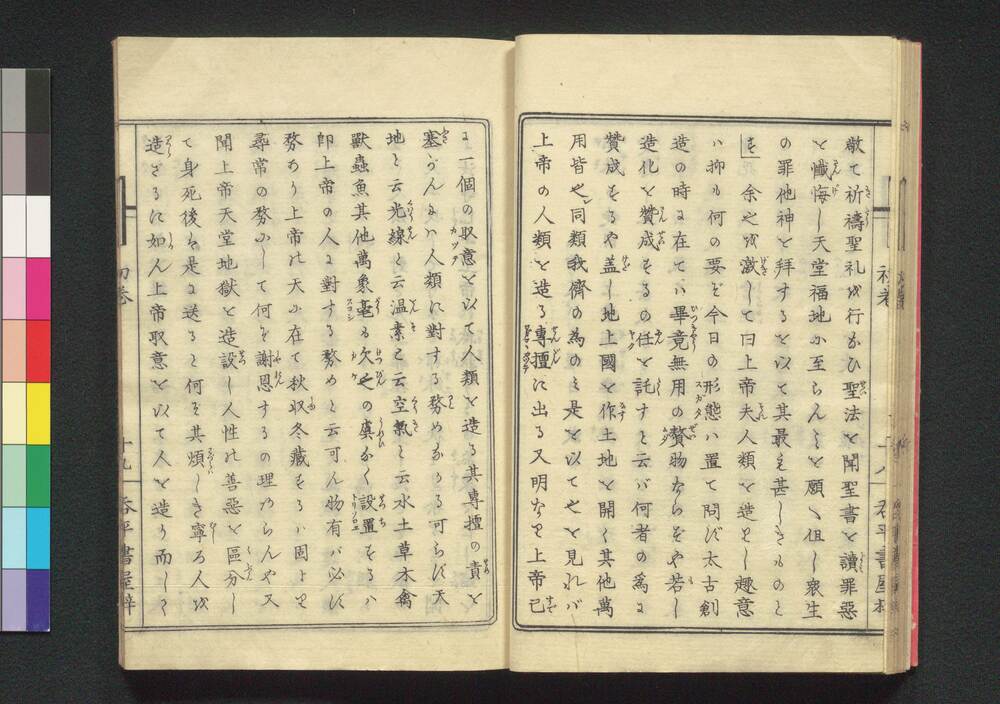 敢て祈禱聖礼を行なひ聖法を聞聖書を讀罪惡
を懺悔し天堂福地に至らんことを願へ但し衆生
の罪他神を拜するを以て其最も甚しきものと
す 余之を激して曰上帝夫人類を造をし趣意
ハ抑も何の要ぞ今日の形態ハ置て問ず太古創
造の時に在てハ畢竟無用の贅物ならずや若し
造化を賛成するの任を託すと云バ何者の為に
賛成をるや蓋し地上國を作土地を開く其他萬
用皆や同類我儕の為のミ是を以てやを見れバ
上帝の人類を造る專擅に出る又明なり上帝已
に一個の取意を以て人類を造る其專擅の責を
塞がんにハ人類に對する務めなかる可らず天
地と云光線と云温素と云空氣と云水土草木禽
獸蟲魚其他萬象毫も欠乏の虞なく設置するハ
即上帝の人に對する務めと云可ん物有バ必ず
務あり上帝は天に在て秋収冬藏をるハ固より
尋常の務にして何を謝恩するの理あらんや又
聞上帝天堂地獄を造設し人性の善惡を區分し
て身死後を是に送ると何ぞ其煩しき寧ろ人を
造ざるに如ん上帝取意を以て人を造り而して
初巻
十九